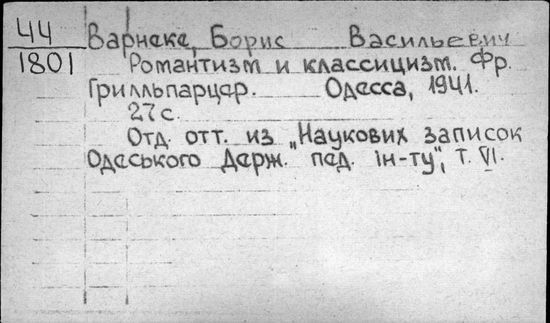 44 Варнеке, Борис Васильевич
1801 Романтизм и классицизм. Фр.
Грилльпарцер. Одесса, 1941.
27 с.
Отд. отт. из „Наукових записок
Одеського Держ. пед. ін-ту", т. VI.